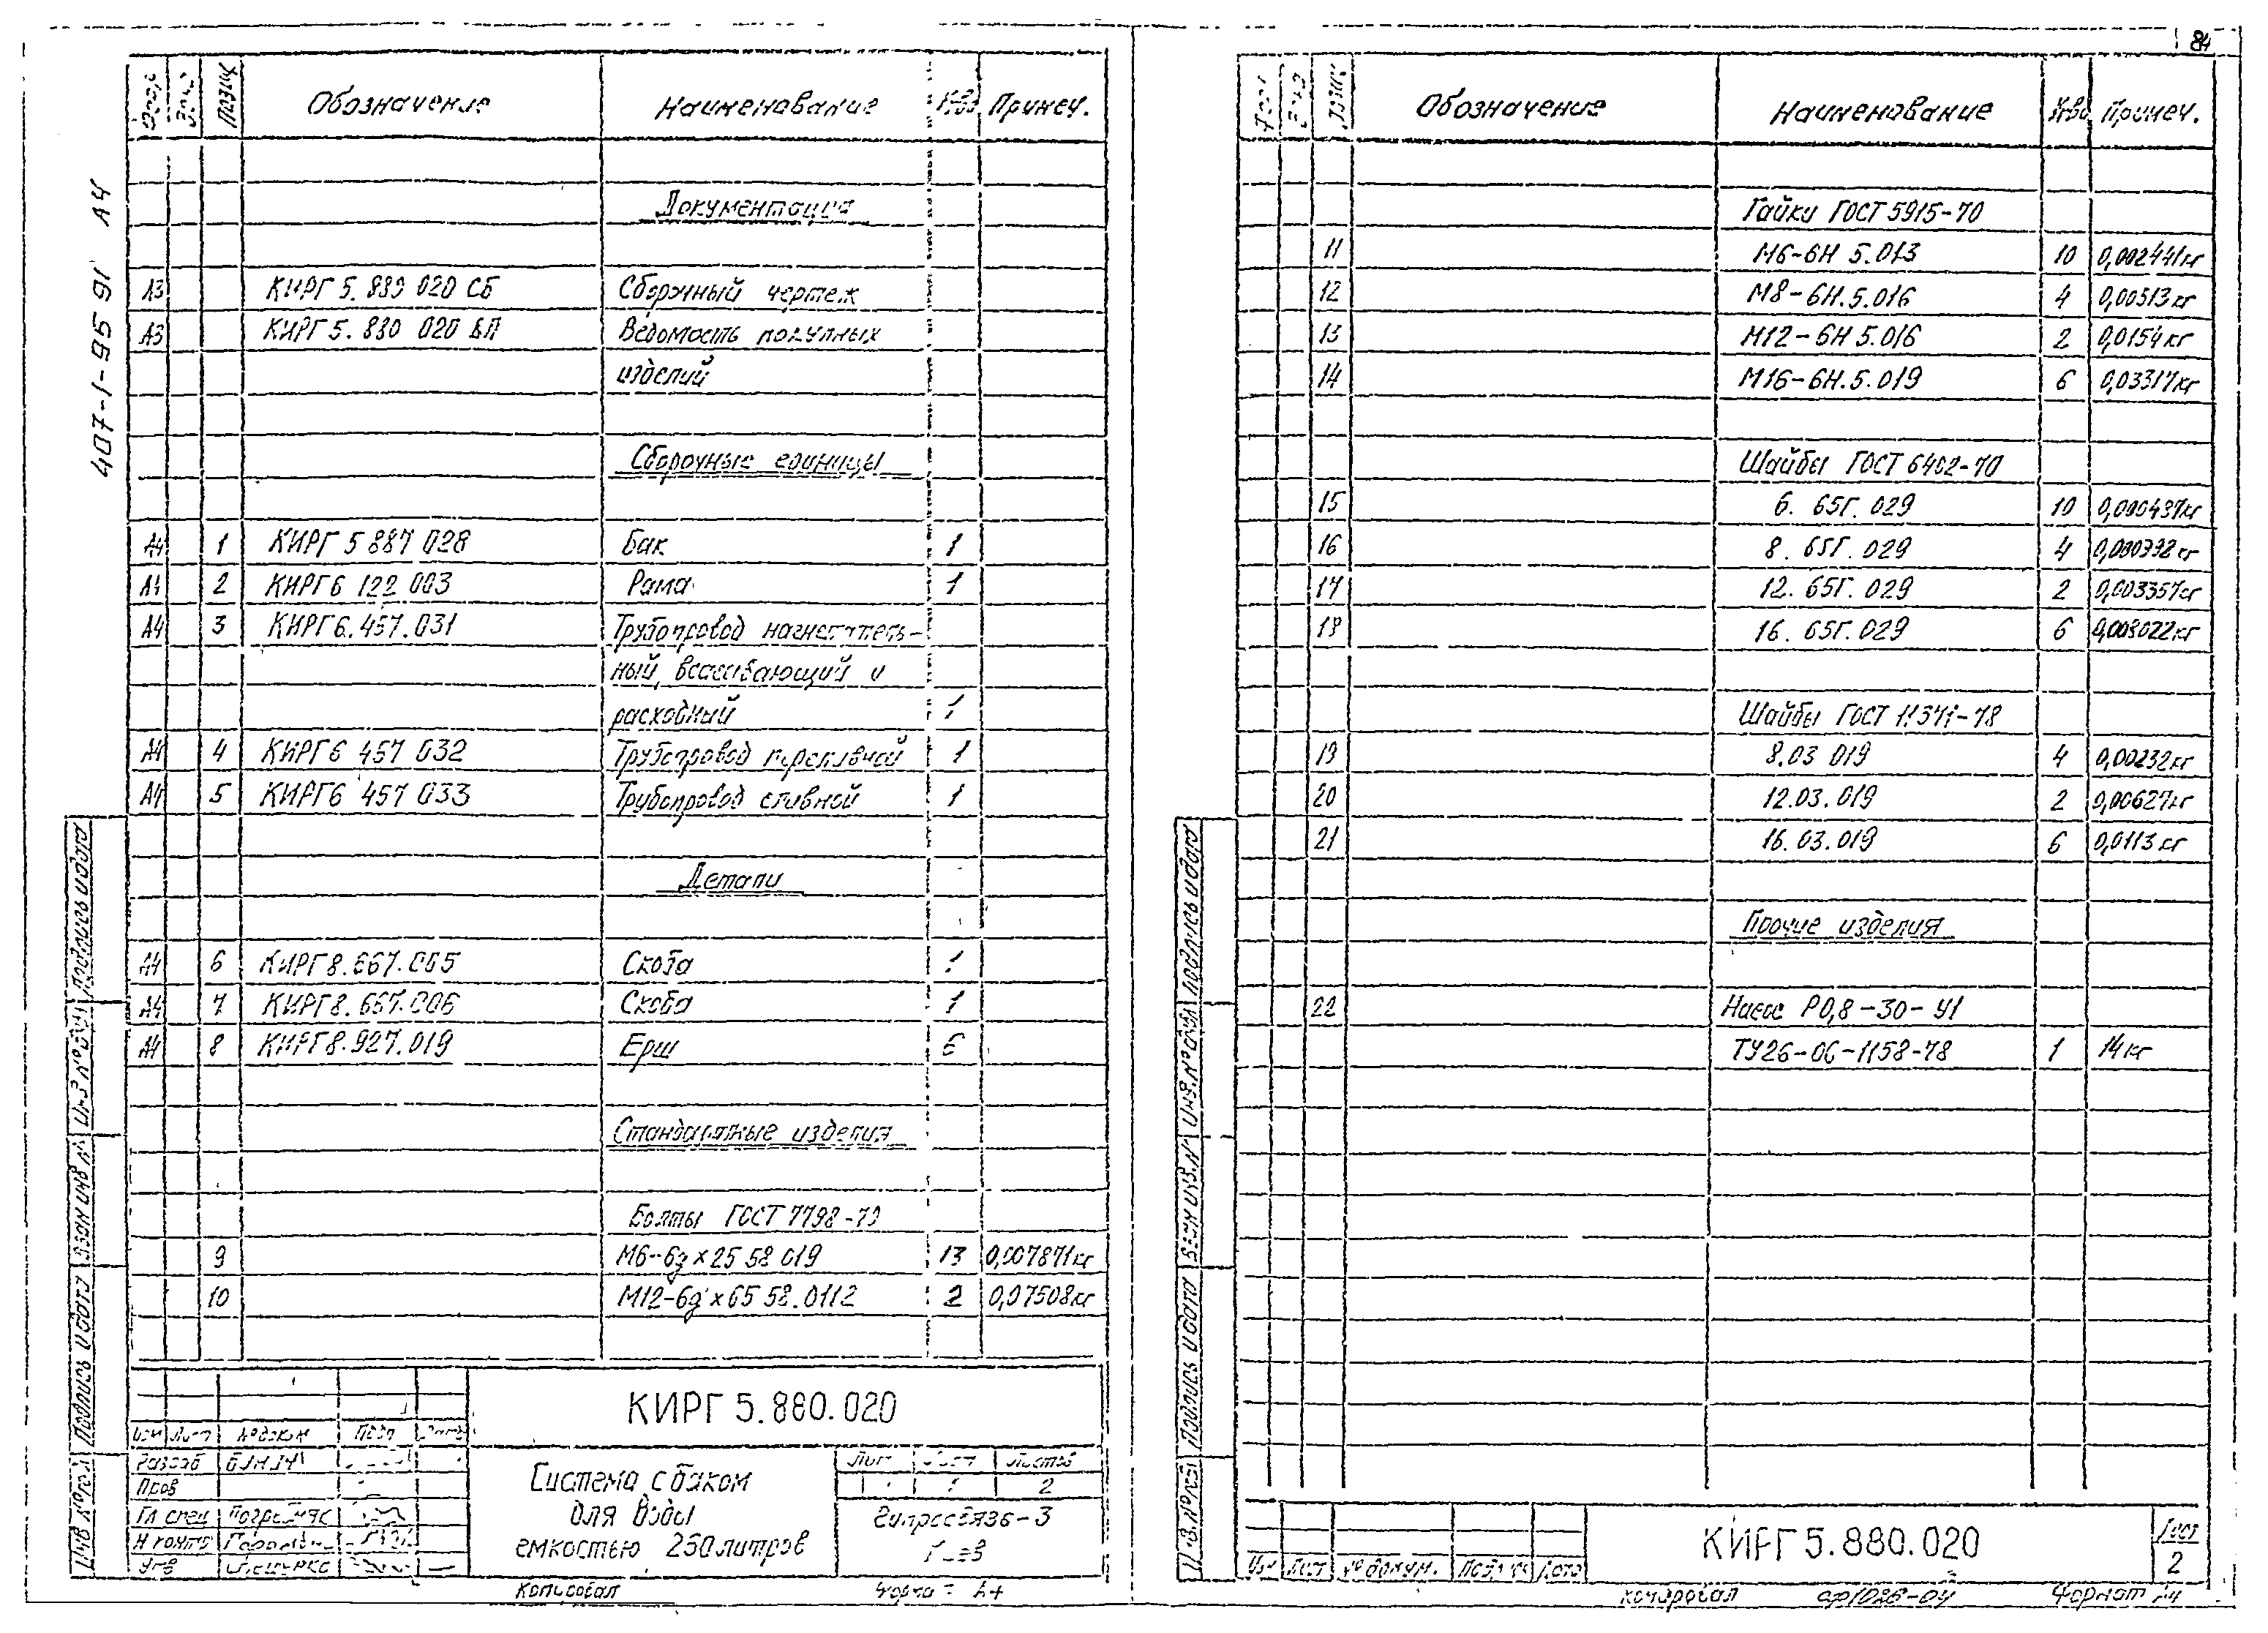 84
407-1-95 91 А4
Позиц Обозначение Наименование К-во Примеч.
Документация
А3 КИРГ 5. 880 020 СБ Сборочный чертеж
А3 КИРГ 5. 880 020 ВП Ведомость покупных
изделий
Сборочные единицы
А4 1 КИРГ 5 887 028 Бак 1
А4 2 КИРГ 6 122 003 Рама 1
А4 3 КИРГ 6. 457. 031 Трубопровод нагнетатель-
ный, всасывающий и
расходный 1
А4 4 КИРГ 6 457 032 Трубопровод переливной 1
А4 5 КИРГ 6 457 033 Трубопровод сливной 1
Детали
А4 6 КИРГ 8. 667. 005 Скоба 1
А4 7 КИРГ 8. 667. 006 Скоба 1
А4 8 КИРГ 8. 927. 019 Ерш 6
Стандартные изделия
Болты ГОСТ 7798-70
9 М6-6g х 25 58 019 13 0,007871кг
10 М12-6g х 65 58. 0112 2 0,07508кг
КИРГ 5. 880. 020
Изм Лист № докум Подп Дата
Разраб
Пров
Гл спец
Н контр
Утв
Система с баком
для воды
емкостью 250 литров
Лит Лист Листов
1 2
Гипросвязь-3
Киев
Копировал Формат А4
Подпись и дата
Инв № дубл
Взам инв №
Подпись и дата
Инв № подл
Позиц Обозначение Наименование К-во Примеч.
Гайки ГОСТ 5915-70
11 М6-6Н 5. 013 10 0,002441кг
12 М8-6Н. 5. 016 4 0,00513кг
13 М12-6Н 5. 016 2 0,0154кг
14 М16-6Н. 5. 019 6 0,03317кг
Шайбы ГОСТ 6402-70
15 6. 65Г. 029 10 0,000437кг
16 8. 65Г. 029 4 0,000992кг
17 12. 65Г. 029 2 0,003357кг
18 16. 65Г. 029 6 0,008022кг
Шайбы ГОСТ 11371-78
19 8.03 019 4 0,00232кг
20 12.03. 019 2 0,00627кг
21 16. 03. 019 6 0,0113кг
Прочие изделия
22 Насос Р0,8-30-У1
ТУ26-06-1158-78 1 14кг
Изм Лист № докум. Подпись Дата
КИРГ 5. 880. 020
Лист
2
Копировал Формат А4
Подпись и дата
Инв. № дубл
Взам инв. №
Подпись и дата
Инв. № подл